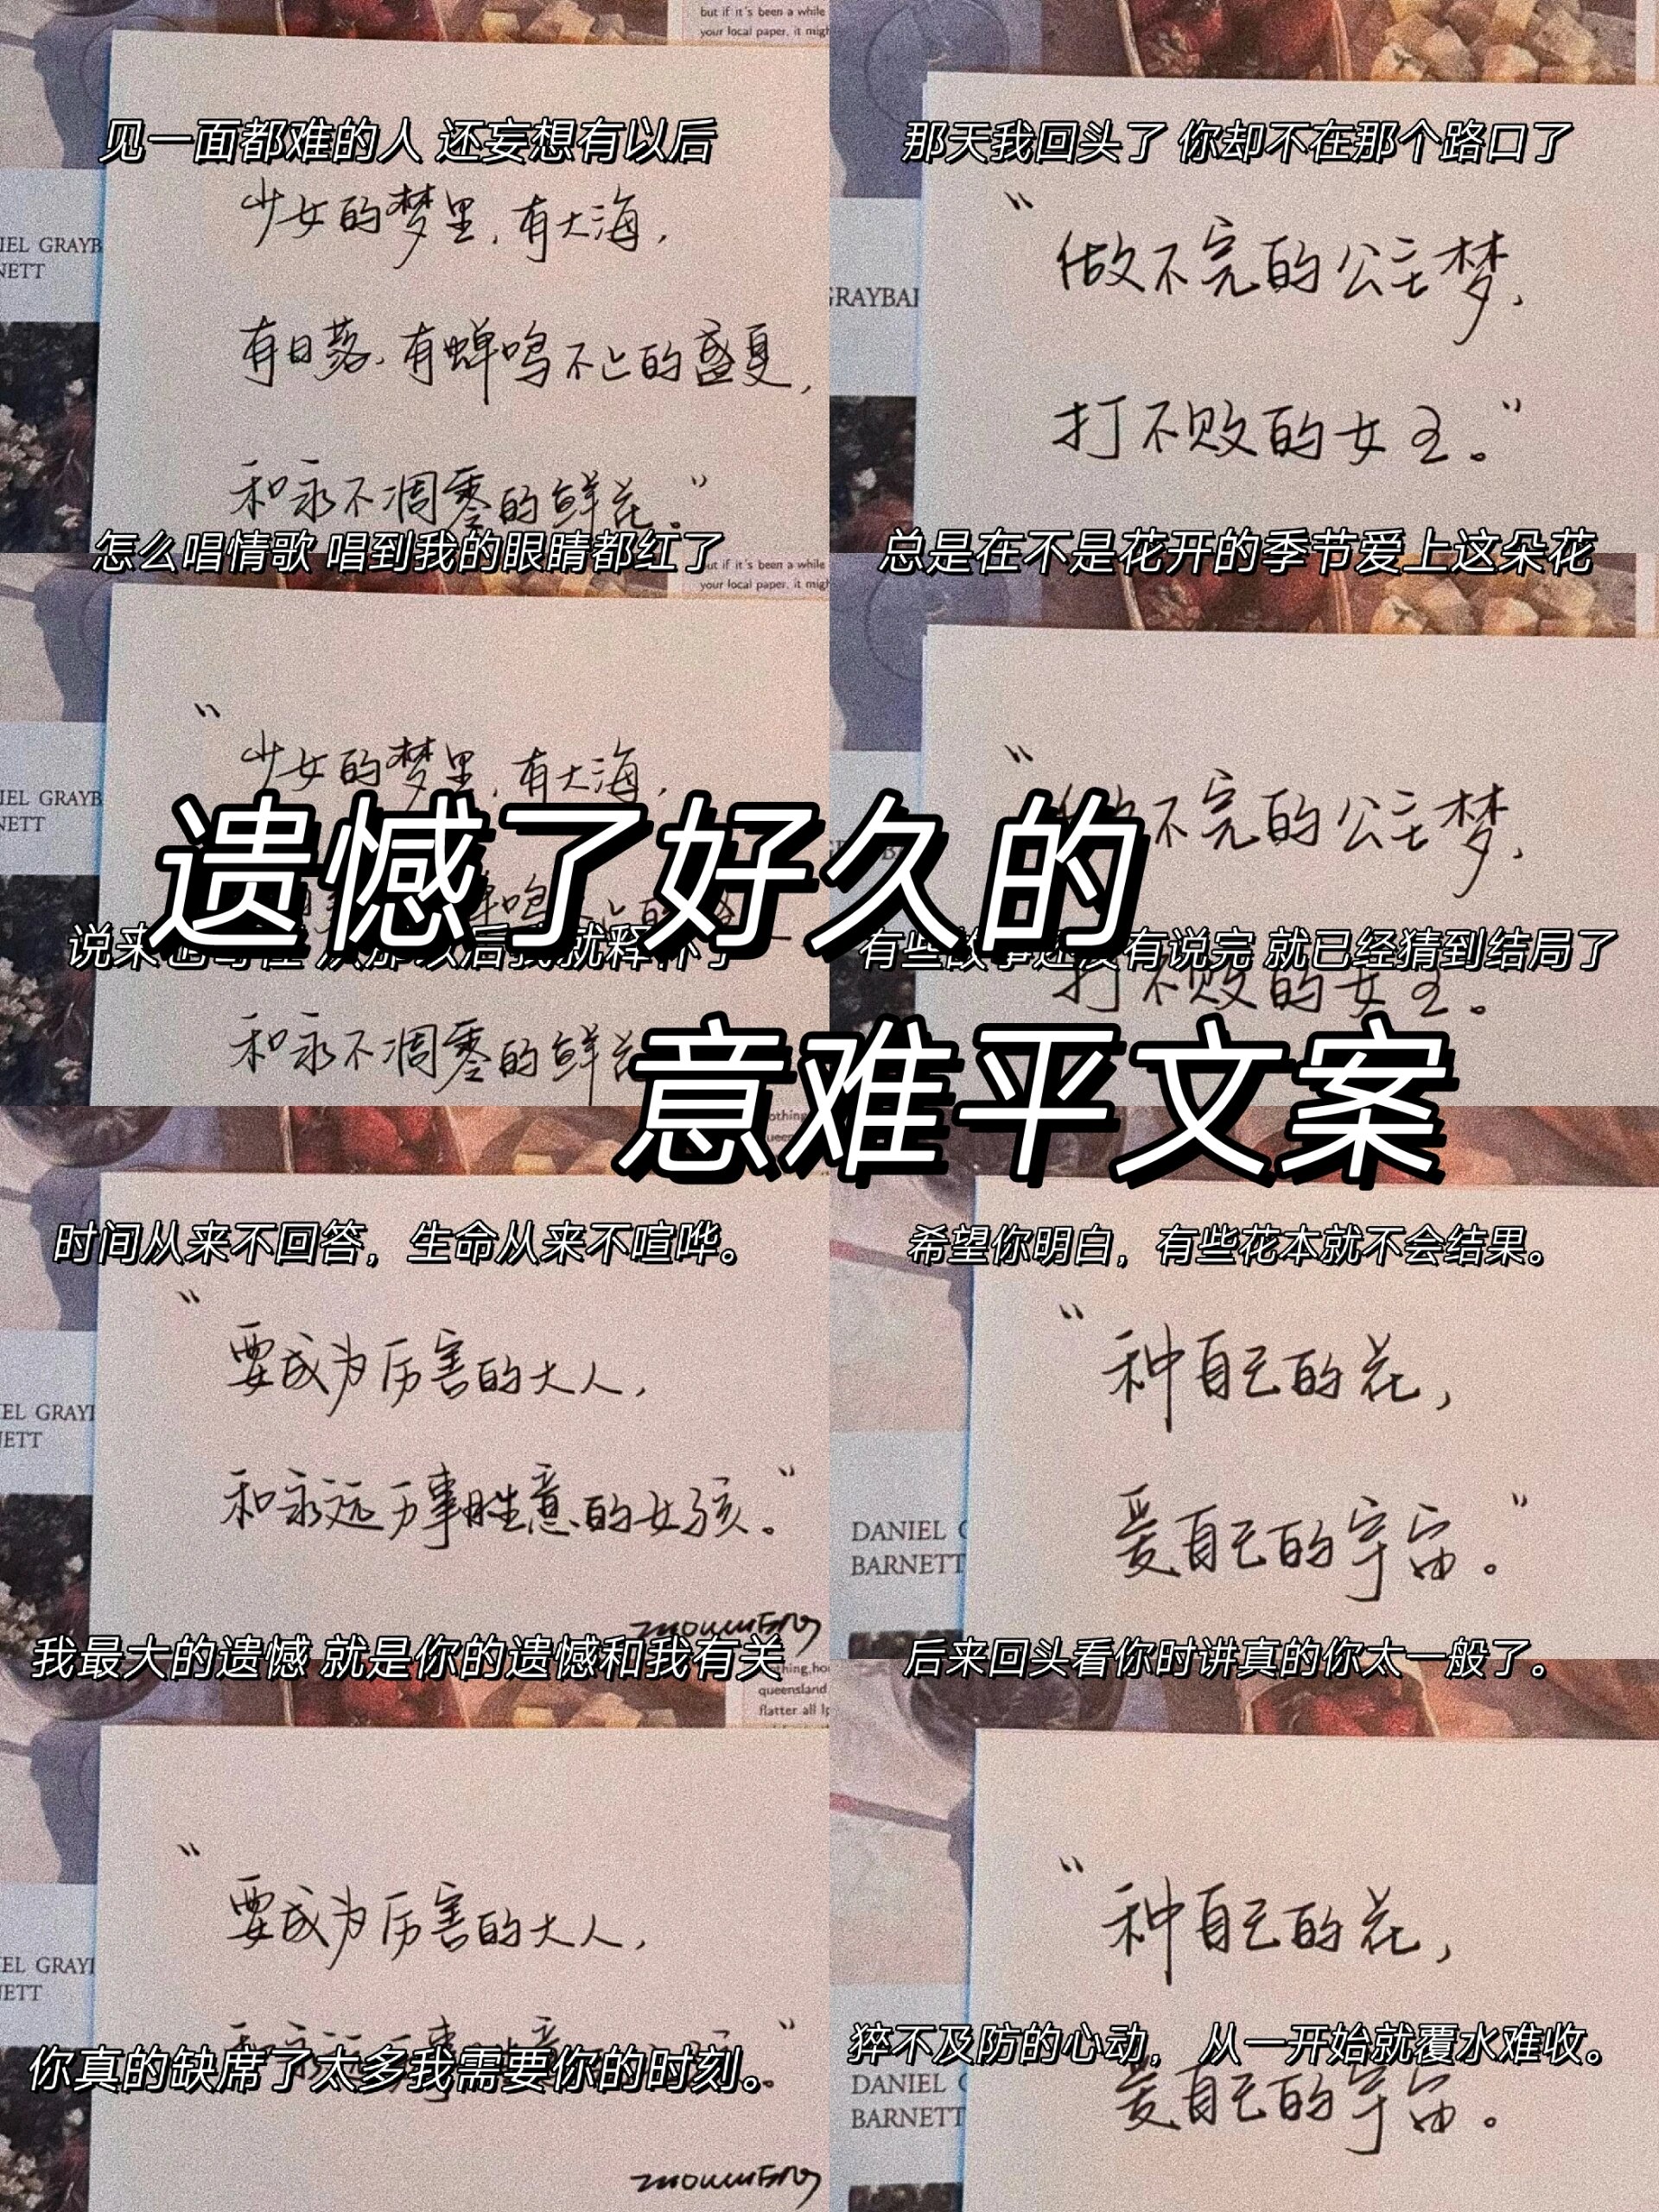 but if it's been a while
your local paper, it migh
见一面都难的人 还妄想有以后
少女的梦里,有大海,
IEL GRAYB
NETT
有日落、有蝉鸣不止的盛夏,
和永不凋零的鲜花。”
怎么唱情歌 唱到我的眼睛都红了
那天我回头了 你却不在那个路口了
“
做不完的公主梦,
GRAYBAI
打不败的女王。”
总是在不是花开的季节爱上这朵花
but if it's been a while
your local paper, it migh
“
少女的梦里,有大海,
IEL GRAYB
NETT
说来
后我就释怀了
和永不凋零的鲜花
“
不完的公主梦,
有些故事还没有说完 就已经猜到结局了
打不败的女王。
遗憾了好久的
意难平文案
时间从来不回答，生命从来不喧哗。
“
要成为厉害的大人,
EL GRAYI
ETT
和永远万事胜意的女孩。”
我最大的遗憾 就是你的遗憾和我有关
希望你明白，有些花本就不会结果。
“
种自己的花,
爱自己的宇宙。”
DANIEL
BARNETT
后来回头看你时讲真的你太一般了。
queensland
flatter all
“
要成为厉害的大人,
EL GRAYI
ETT
你真的缺席了太多我需要你的时刻。
“
种自己的花,
猝不及防的心动， 从一开始就覆水难收。
DANIEL
BARNETT
爱自己的宇宙。